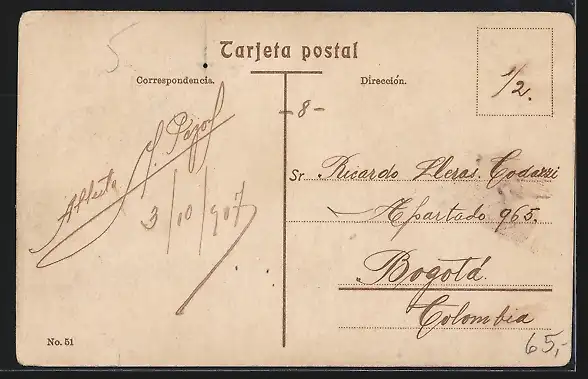 5
Tarjeta postal
Correspondencia.
Dirección.
1/2.
- 8 -
Sr Ricardo Lleras Codazzi
Apartado 965.
Bogotá
Colombia
Alberto
3/10/907
No. 51
65,-